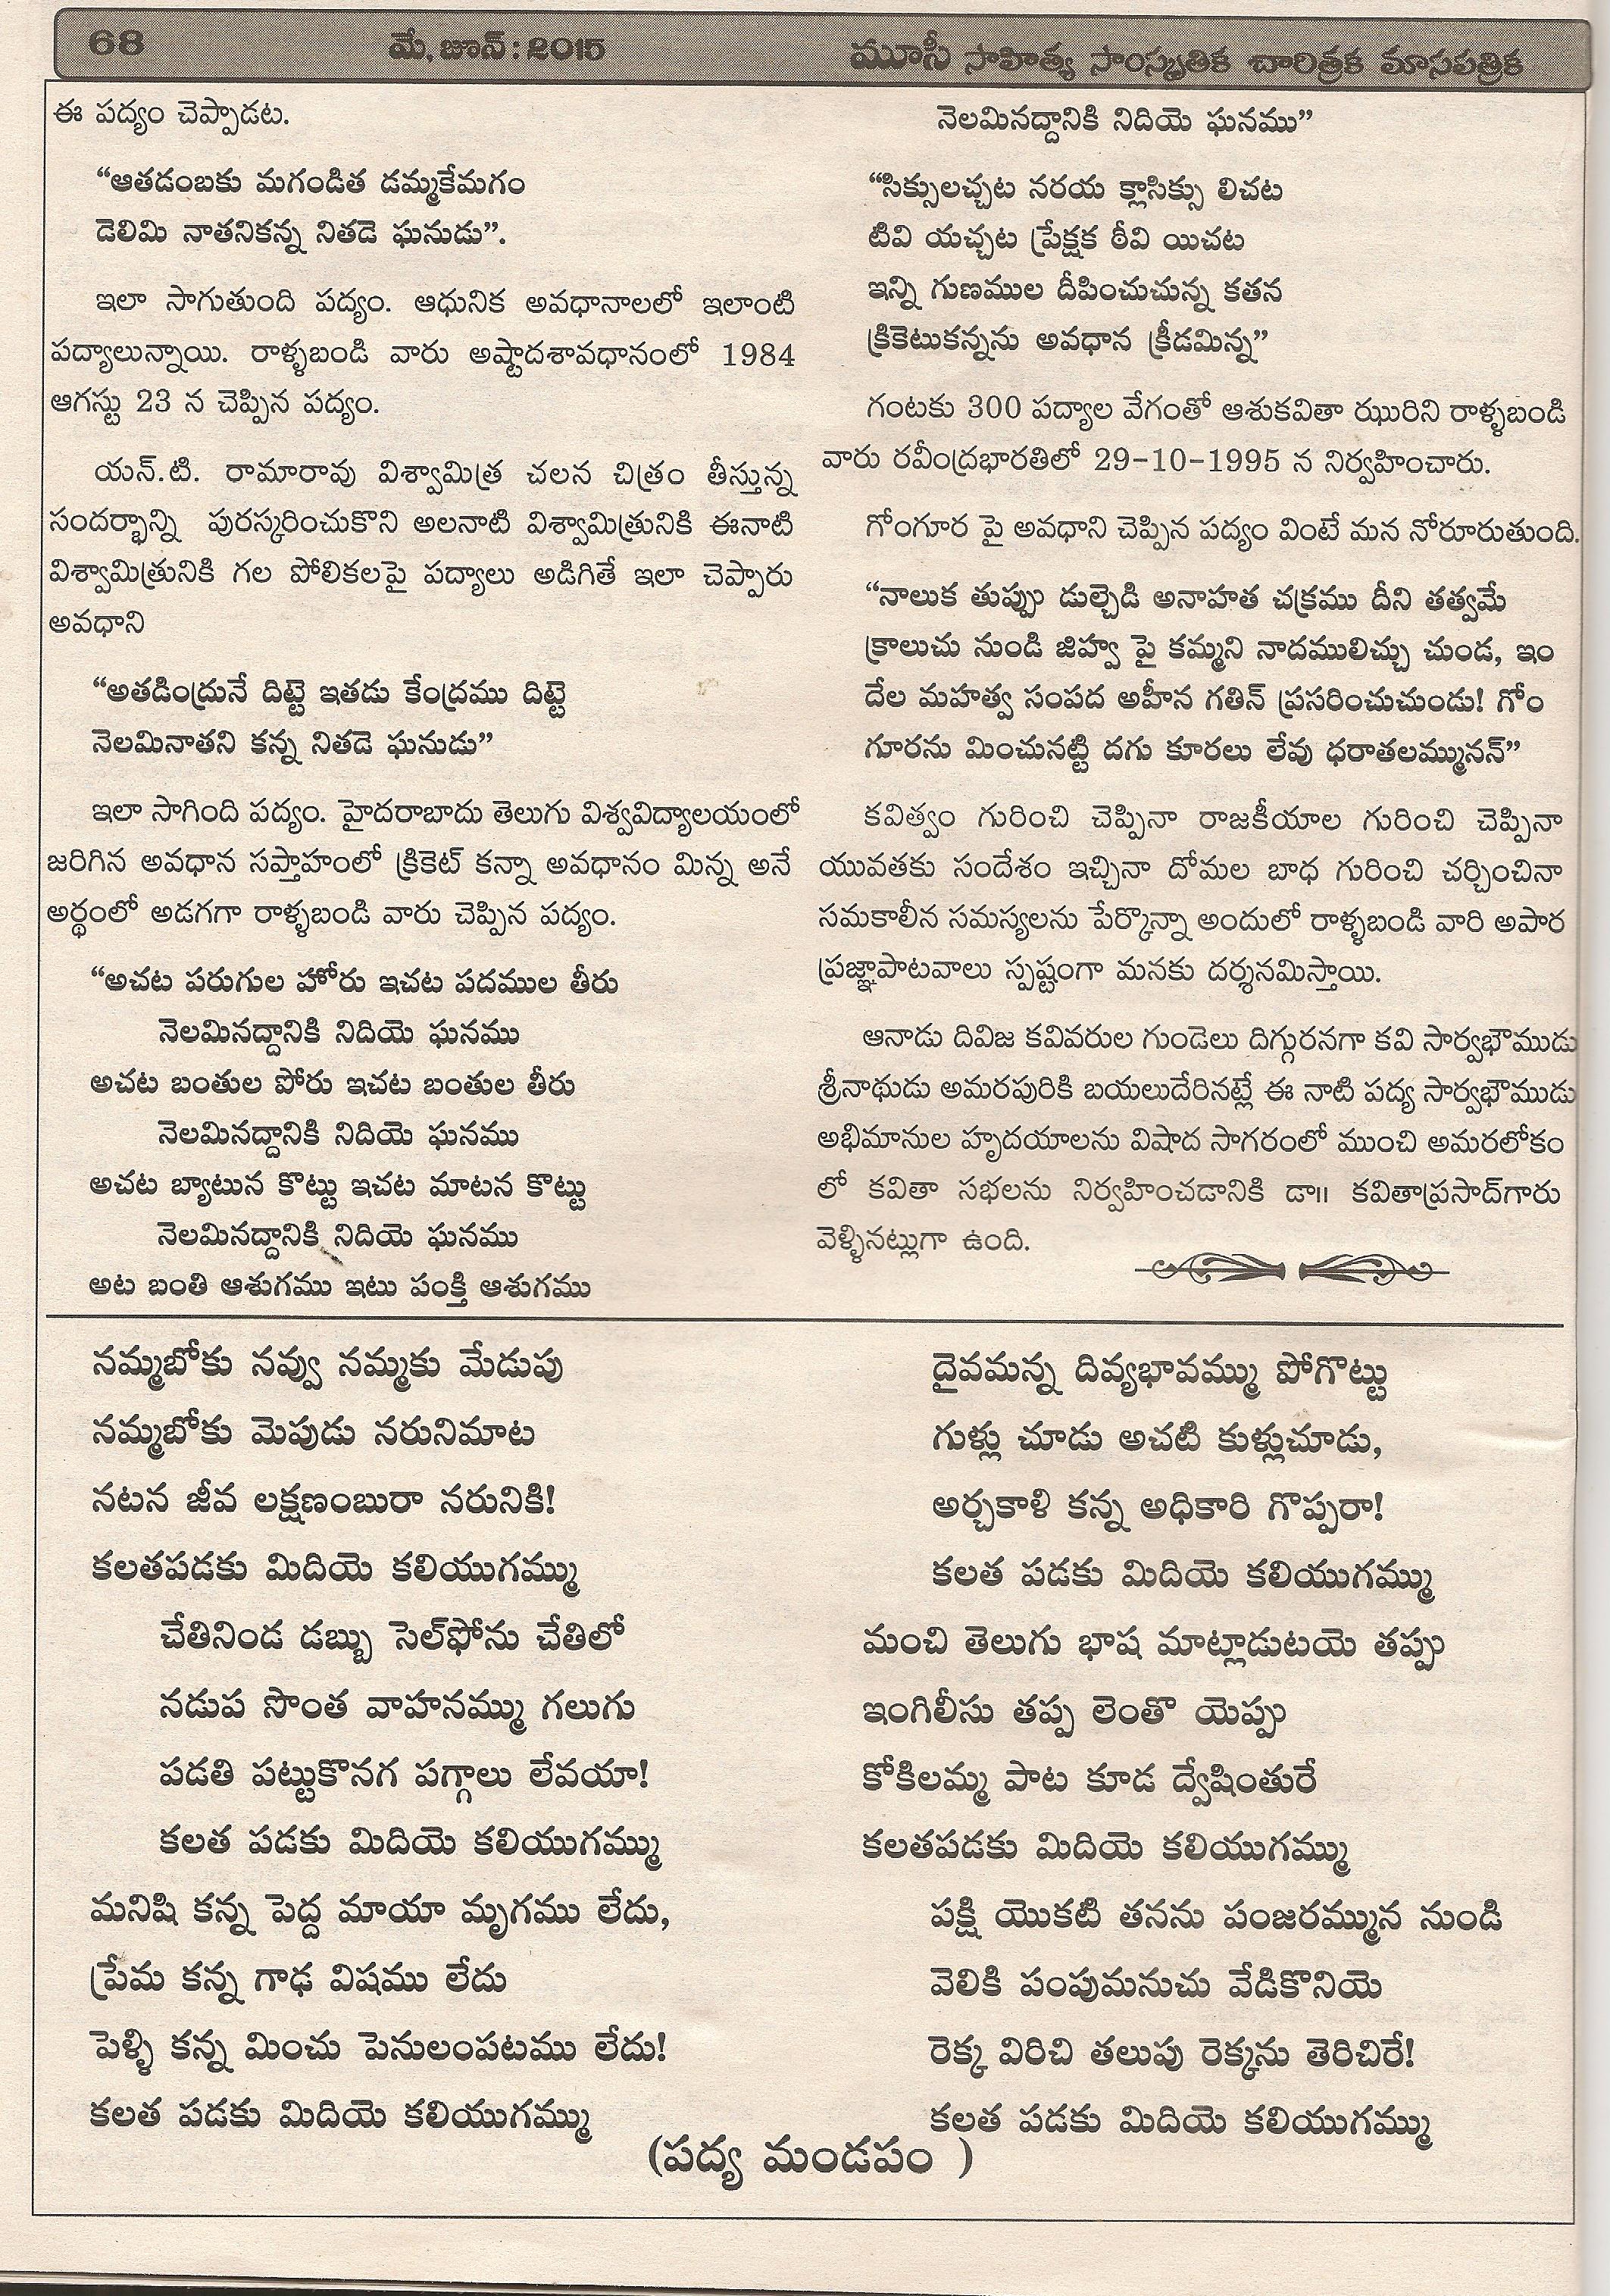 68 మే, జూన్ : 2015 మూసీ సాహిత్య సాంస్కృతిక చారిత్రక మాసపత్రిక
ఈ పద్యం చెప్పాడట.
“ఆతడంబకు మగండిత డమ్మకేమగం
డెలిమి నాతనికన్న నితడె ఘనుడు”.
ఇలా సాగుతుంది పద్యం. ఆధునిక అవధానాలలో ఇలాంటి
పద్యాలున్నాయి. రాళ్ళబండి వారు అష్టాదశావధానంలో 1984
ఆగస్టు 23 న చెప్పిన పద్యం.
యన్.టి. రామారావు విశ్వామిత్ర చలన చిత్రం తీస్తున్న
సందర్భాన్ని పురస్కరించుకొని అలనాటి విశ్వామిత్రునికి ఈనాటి
విశ్వామిత్రునికి గల పోలికలపై పద్యాలు అడిగితే ఇలా చెప్పారు
అవధాని
“అతడింద్రునే దిట్టె ఇతడు కేంద్రము దిట్టె
నెలమినాతని కన్న నితడె ఘనుడు”
ఇలా సాగింది పద్యం. హైదరాబాదు తెలుగు విశ్వవిద్యాలయంలో
జరిగిన అవధాన సప్తాహంలో క్రికెట్ కన్నా అవధానం మిన్న అనే
అర్థంలో అడగగా రాళ్ళబండి వారు చెప్పిన పద్యం.
“అచట పరుగుల హోరు ఇచట పదముల తీరు
నెలమినద్దానికి నిదియె ఘనము
అచట బంతుల పోరు ఇచట బంతుల తీరు
నెలమినద్దానికి నిదియె ఘనము
అచట బ్యాటున కొట్టు ఇచట మాటన కొట్టు
నెలమినద్దానికి నిదియె ఘనము
అట బంతి ఆశుగము ఇటు పంక్తి ఆశుగము
నెలమినద్దానికి నిదియె ఘనము”
“సిక్సులచ్చట నరయ క్లాసిక్సు లిచట
టివి యచ్చట ప్రేక్షక ఠీవి యిచట
ఇన్ని గుణముల దీపించుచున్న కతన
క్రికెటుకన్నను అవధాన క్రీడమిన్న”
గంటకు 300 పద్యాల వేగంతో ఆశుకవితా ఝురిని రాళ్ళబండి
వారు రవీంద్రభారతిలో 29-10-1995 న నిర్వహించారు.
గోంగూర పై అవధాని చెప్పిన పద్యం వింటే మన నోరూరుతుంది.
“నాలుక తుప్పు డుల్చెడి అనాహత చక్రము దీని తత్వమే
క్రాలుచు నుండి జిహ్వ పై కమ్మని నాదములిచ్చు చుండ, ఇం
దేల మహత్వ సంపద అహీన గతిన్ ప్రసరించుచుండు! గోం
గూరను మించునట్టి దగు కూరలు లేవు ధరాతలమ్మునన్”
కవిత్వం గురించి చెప్పినా రాజకీయాల గురించి చెప్పినా
యువతకు సందేశం ఇచ్చినా దోమల బాధ గురించి చర్చించినా
సమకాలీన సమస్యలను పేర్కొన్నా అందులో రాళ్ళబండి వారి అపార
ప్రజ్ఞాపాటవాలు స్పష్టంగా మనకు దర్శనమిస్తాయి.
ఆనాడు దివిజ కవివరుల గుండెలు దిగ్గురనగా కవి సార్వభౌముడు
శ్రీనాథుడు అమరపురికి బయలుదేరినట్లే ఈ నాటి పద్య సార్వభౌముడు
అభిమానుల హృదయాలను విషాద సాగరంలో ముంచి అమరలోకం
లో కవితా సభలను నిర్వహించడానికి డా॥ కవితాప్రసాద్‌గారు
వెళ్ళినట్లుగా ఉంది.
నమ్మబోకు నవ్వు నమ్మకు మేడుపు
నమ్మబోకు మెపుడు నరునిమాట
నటన జీవ లక్షణంబురా నరునికి!
కలతపడకు మిదియె కలియుగమ్ము
చేతినిండ డబ్బు సెల్‌ఫోను చేతిలో
నడుప సొంత వాహనమ్ము గలుగు
పడతి పట్టుకొనగ పగ్గాలు లేవయా!
కలత పడకు మిదియె కలియుగమ్ము
మనిషి కన్న పెద్ద మాయా మృగము లేదు,
ప్రేమ కన్న గాఢ విషము లేదు
పెళ్ళి కన్న మించు పెనులంపటము లేదు!
కలత పడకు మిదియె కలియుగమ్ము
దైవమన్న దివ్యభావమ్ము పోగొట్టు
గుళ్లు చూడు అచటి కుళ్లుచూడు,
అర్చకాళి కన్న అధికారి గొప్పరా!
కలత పడకు మిదియె కలియుగమ్ము
మంచి తెలుగు భాష మాట్లాడుటయె తప్పు
ఇంగిలీసు తప్ప లెంతొ యెప్పు
కోకిలమ్మ పాట కూడ ద్వేషింతురే
కలతపడకు మిదియె కలియుగమ్ము
పక్షి యొకటి తనను పంజరమ్మున నుండి
వెలికి పంపుమనుచు వేడికొనియె
రెక్క విరిచి తలుపు రెక్కను తెరిచిరే!
కలత పడకు మిదియె కలియుగమ్ము
(పద్య మండపం )